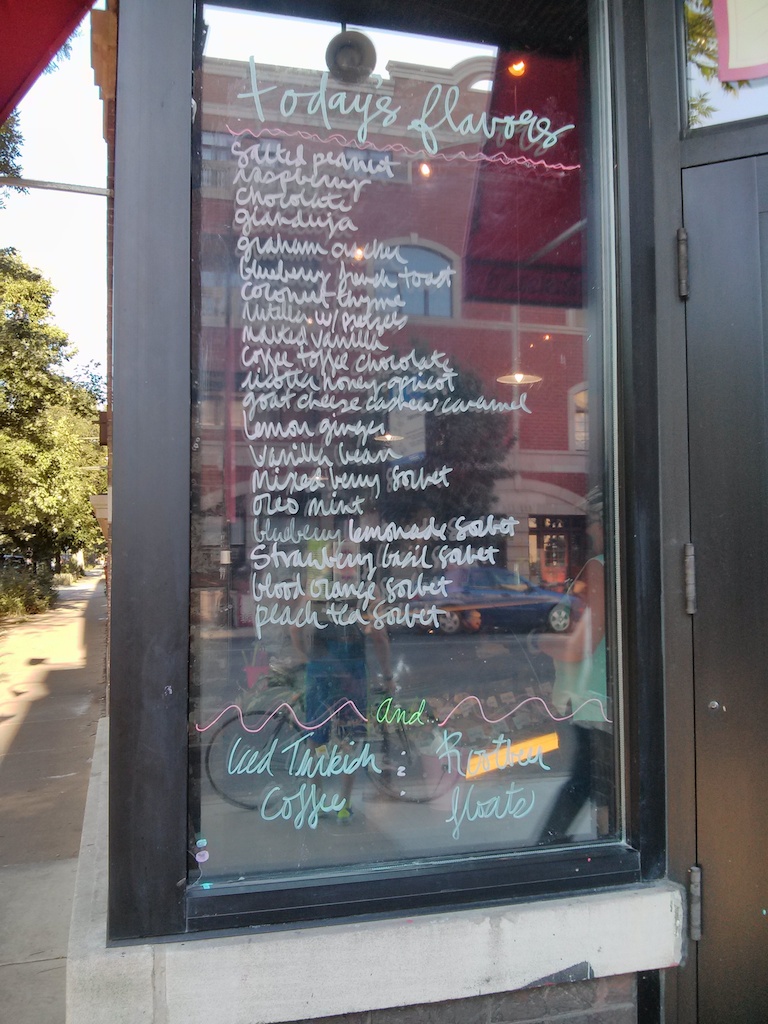 today's flavors
salted peanut
raspberry
chocolate
gianduja
graham cracker
blueberry french toast
coconut thyme
Nutella w/ pretzels
malted vanilla
coffee toffee chocolate
ricotta honey apricot
goat cheese cashew caramel
lemon ginger
vanilla bean
Mixed berry sorbet
oreo mint
blueberry lemonade sorbet
Strawberry basil sorbet
blood orange sorbet
peach tea sorbet
And...
Iced Turkish
Coffee
Rootbeer
floats